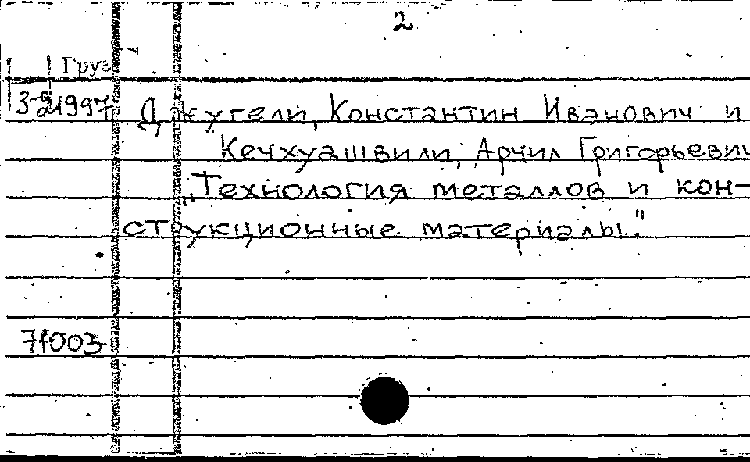 2
Груз
3-2
21997
Джугели, Константин Иванович и
Кечхуашвили, Арчил Григорьевич
„Технология металлов и кон-
струкционные материалы."
71003